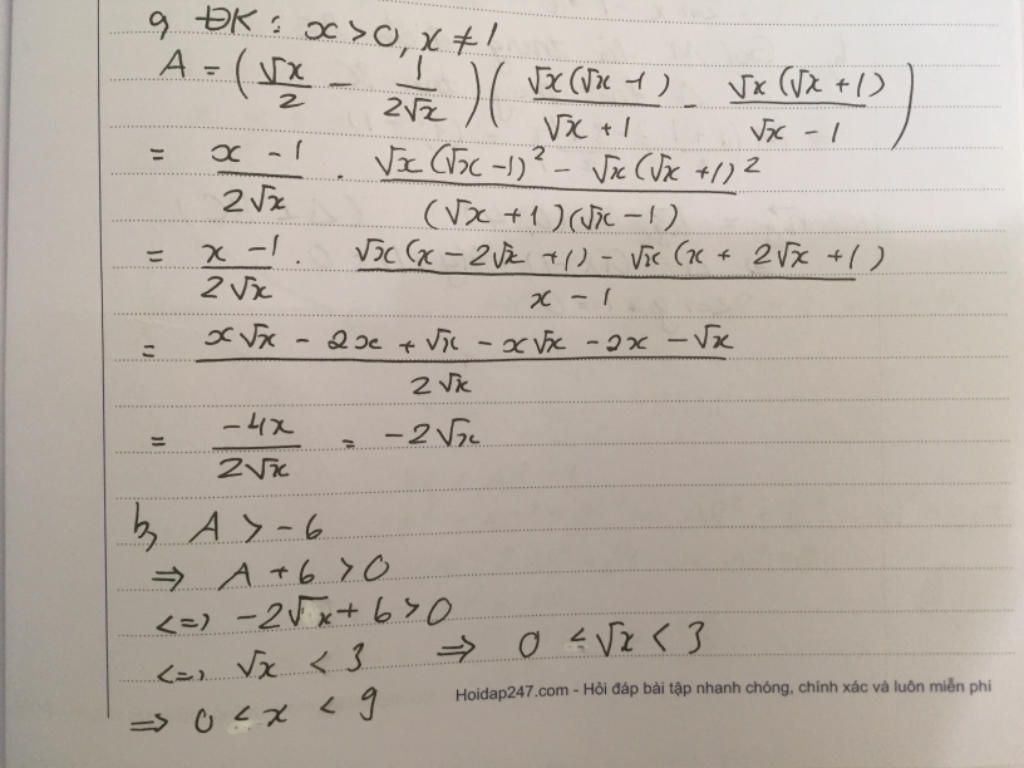 a, ĐK : x > 0, x ≠ 1
A = (√x/2 - 1/(2√x)) (√x(√x - 1)/(√x + 1) - √x(√x + 1)/(√x - 1))
= (x - 1)/(2√x) . (√x(√x - 1)² - √x(√x + 1)²)/((√x + 1)(√x - 1))
= (x - 1)/(2√x) . (√x(x - 2√x + 1) - √x(x + 2√x + 1))/(x - 1)
= (x√x - 2x + √x - x√x - 2x - √x)/(2√x)
= -4x/(2√x) = -2√x
b, A > -6
=> A + 6 > 0
<=> -2√x + 6 > 0
<=> √x < 3 => 0 ≤ √x < 3
=> 0 < x < 9
Hoidap247.com - Hỏi đáp bài tập nhanh chóng, chính xác và luôn miễn phí